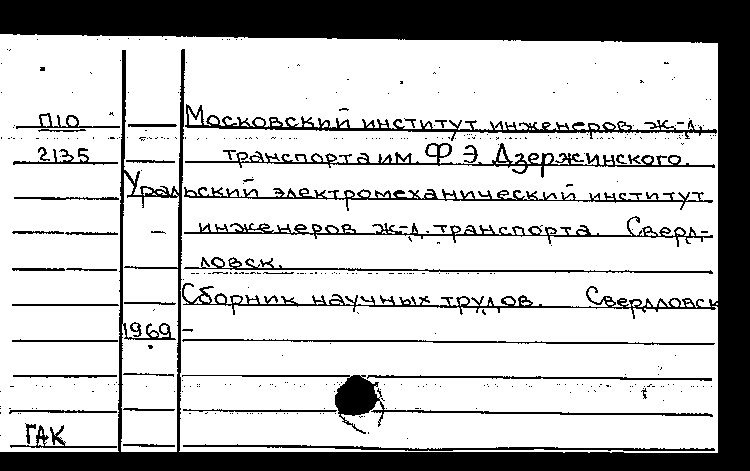 П10 Московский институт инженеров ж.-д.
2135 транспорта им. Ф.Э. Дзержинского.
Уральский электромеханический институт
инженеров ж-д. транспорта. Сверд-
ловск.
Сборник научных трудов. Свердловск
1969 -
ГАК